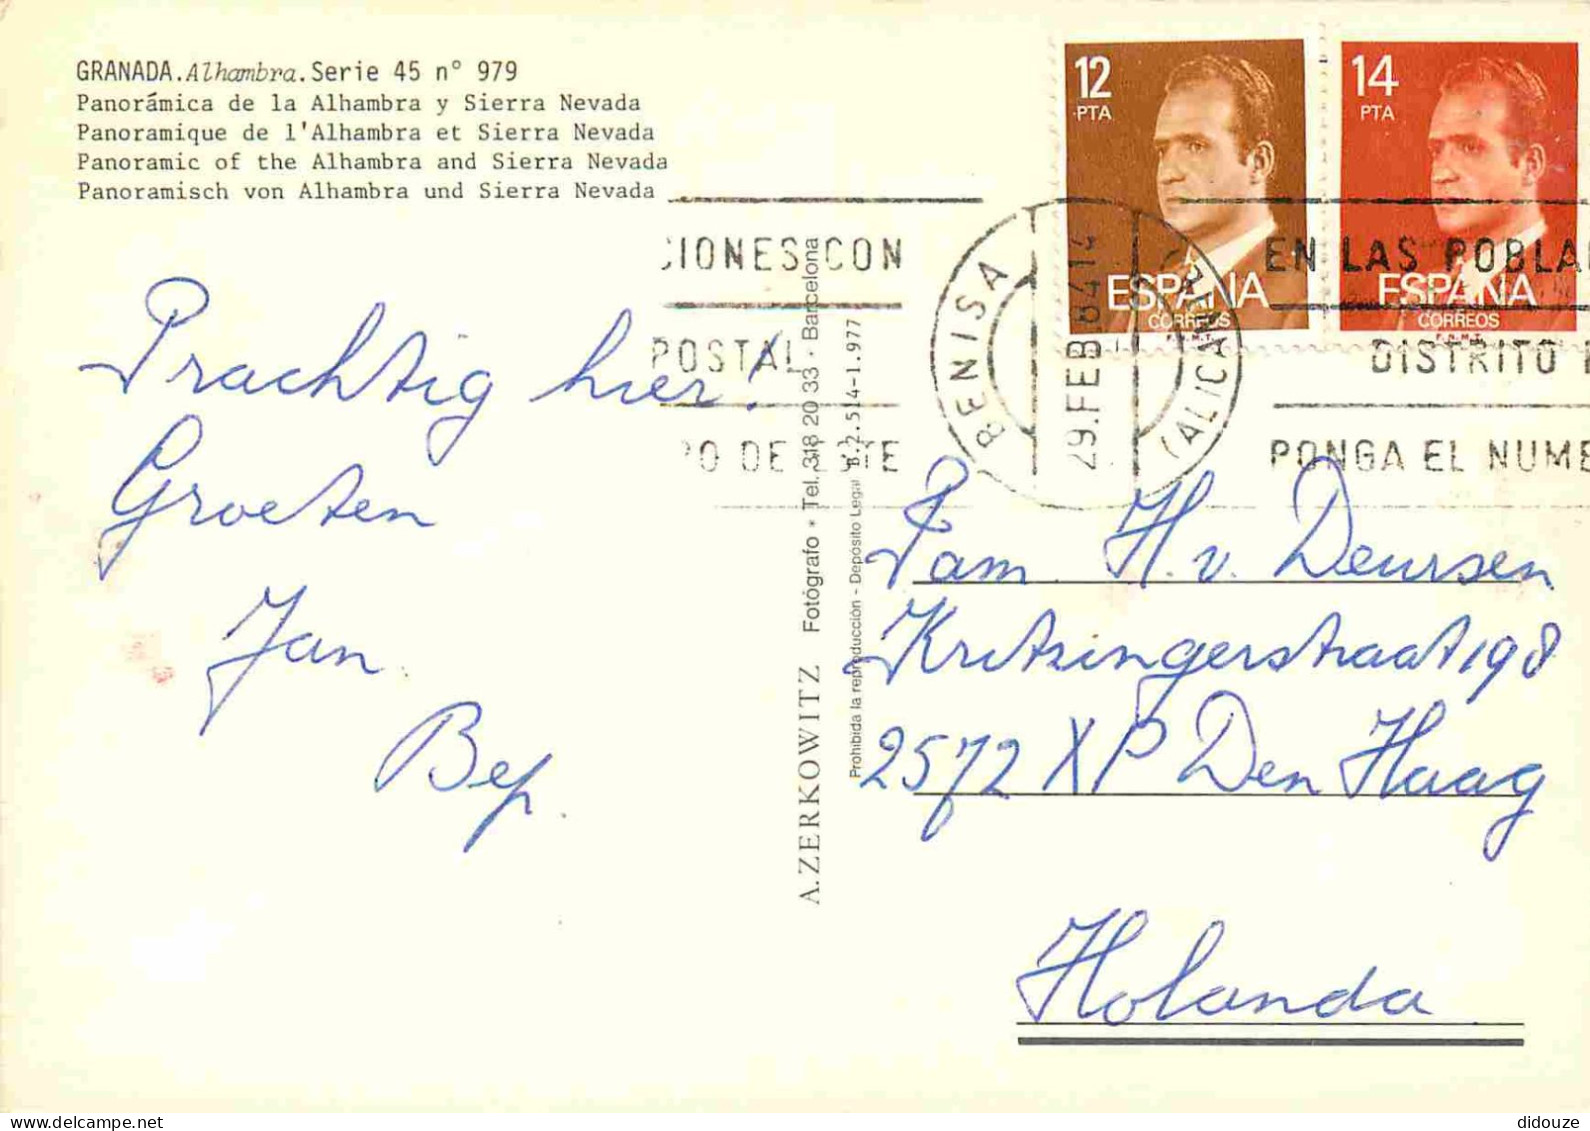 GRANADA.Alhambra.Serie 45 n° 979
Panorámica de la Alhambra y Sierra Nevada
Panoramique de l'Alhambra et Sierra Nevada
Panoramic of the Alhambra and Sierra Nevada
Panoramisch von Alhambra und Sierra Nevada
Prachtig hier!
Groeten
Jan
Bep.
A.ZERKOWITZ Fotógrafo • Tel. 318 20 33 - Barcelona
Prohibida la reproducción - Depósito Legal B.2.514-1.977
12
PTA
ESPAÑA
CORREOS
F.N.M.T.
14
PTA
ESPAÑA
CORREOS
CIONES CON
POSTAL
BENISA
(ALICANTE)
29.FEB
EN LAS POBLA
DISTRITO
PONGA EL NUME
Fam. H. v. Deursen
Kritzingerstraat 198
2572 XP Den Haag
Holanda
didouze